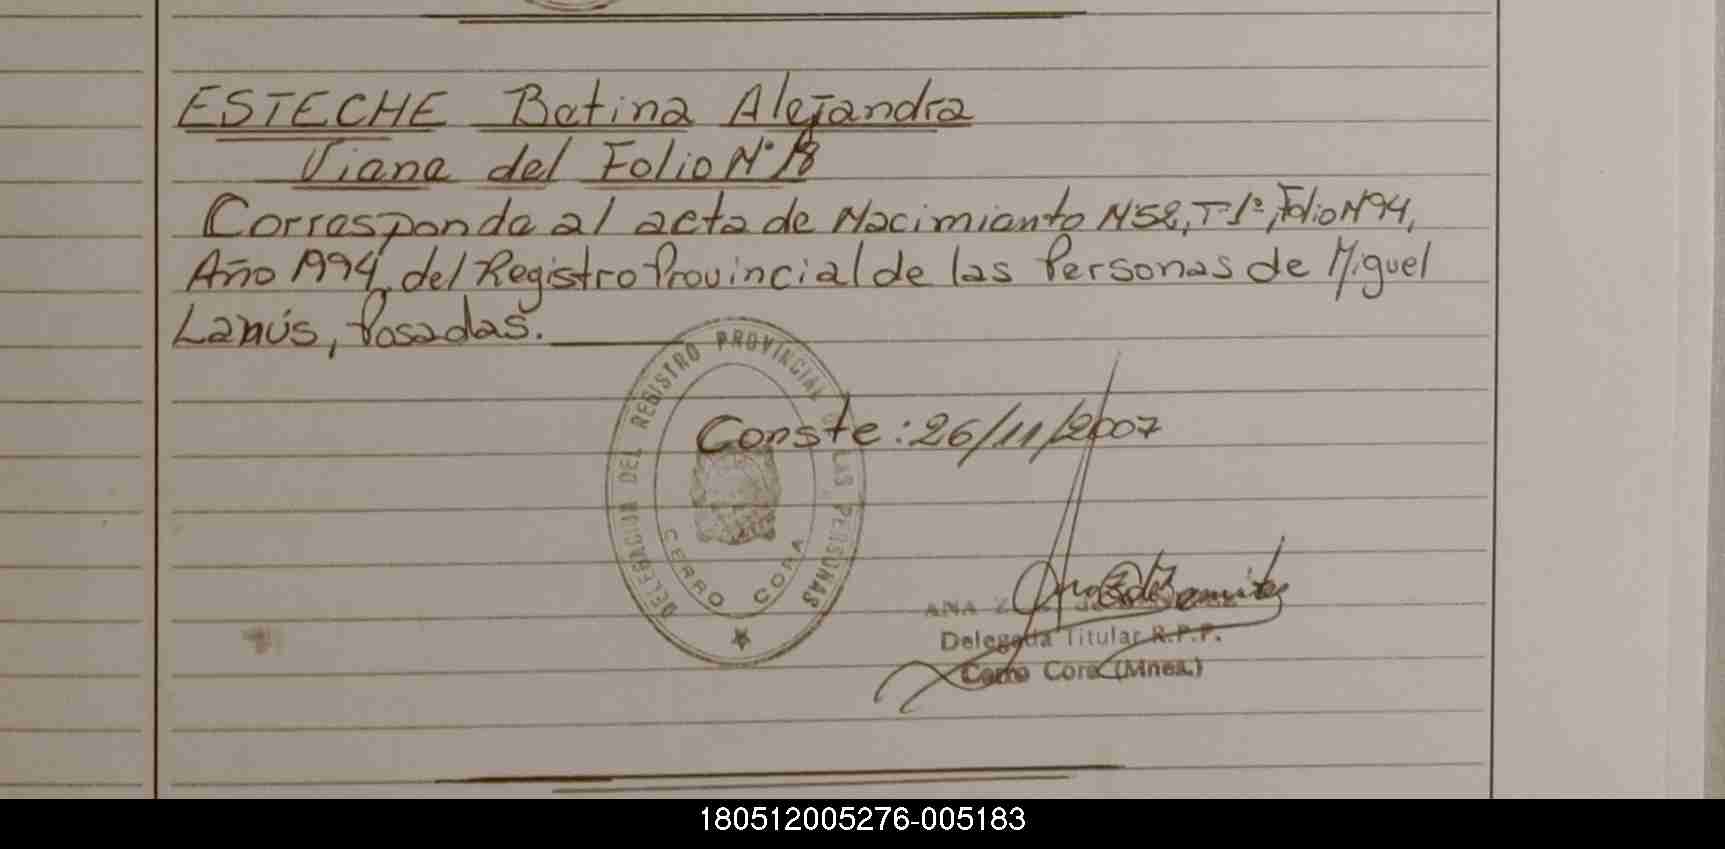 ESTECHE Betina Alejandra
Viene del Folio N° 18
Corresponde al acta de Nacimiento N°58, T-1º, Folio N°94,
Año 1994, del Registro Provincial de las Personas de Miguel
Lanús, Posadas.
DELEGACION DEL REGISTRO PROVINCIAL DE LAS PERSONAS
CERRO CORA
Conste: 26/11/2007
ANA
Delegada Titular R.P.P.
Cerro Cora (Mnes.)
180512005276-005183